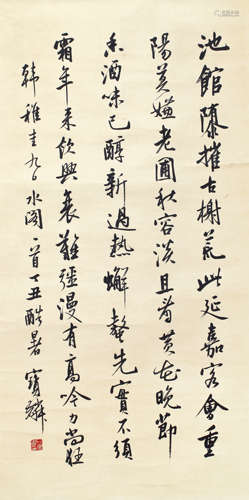 池館隳摧古榭荒此延嘉客會重
陽莫嫌老圃秋容淡且看黃花晚節
香酒味已醇新過熱蠏螯先實不須
霜年來飲興衰難彊漫有高吟力尚狂
韓稚圭九日水閣一首丁丑酷暑寶麟